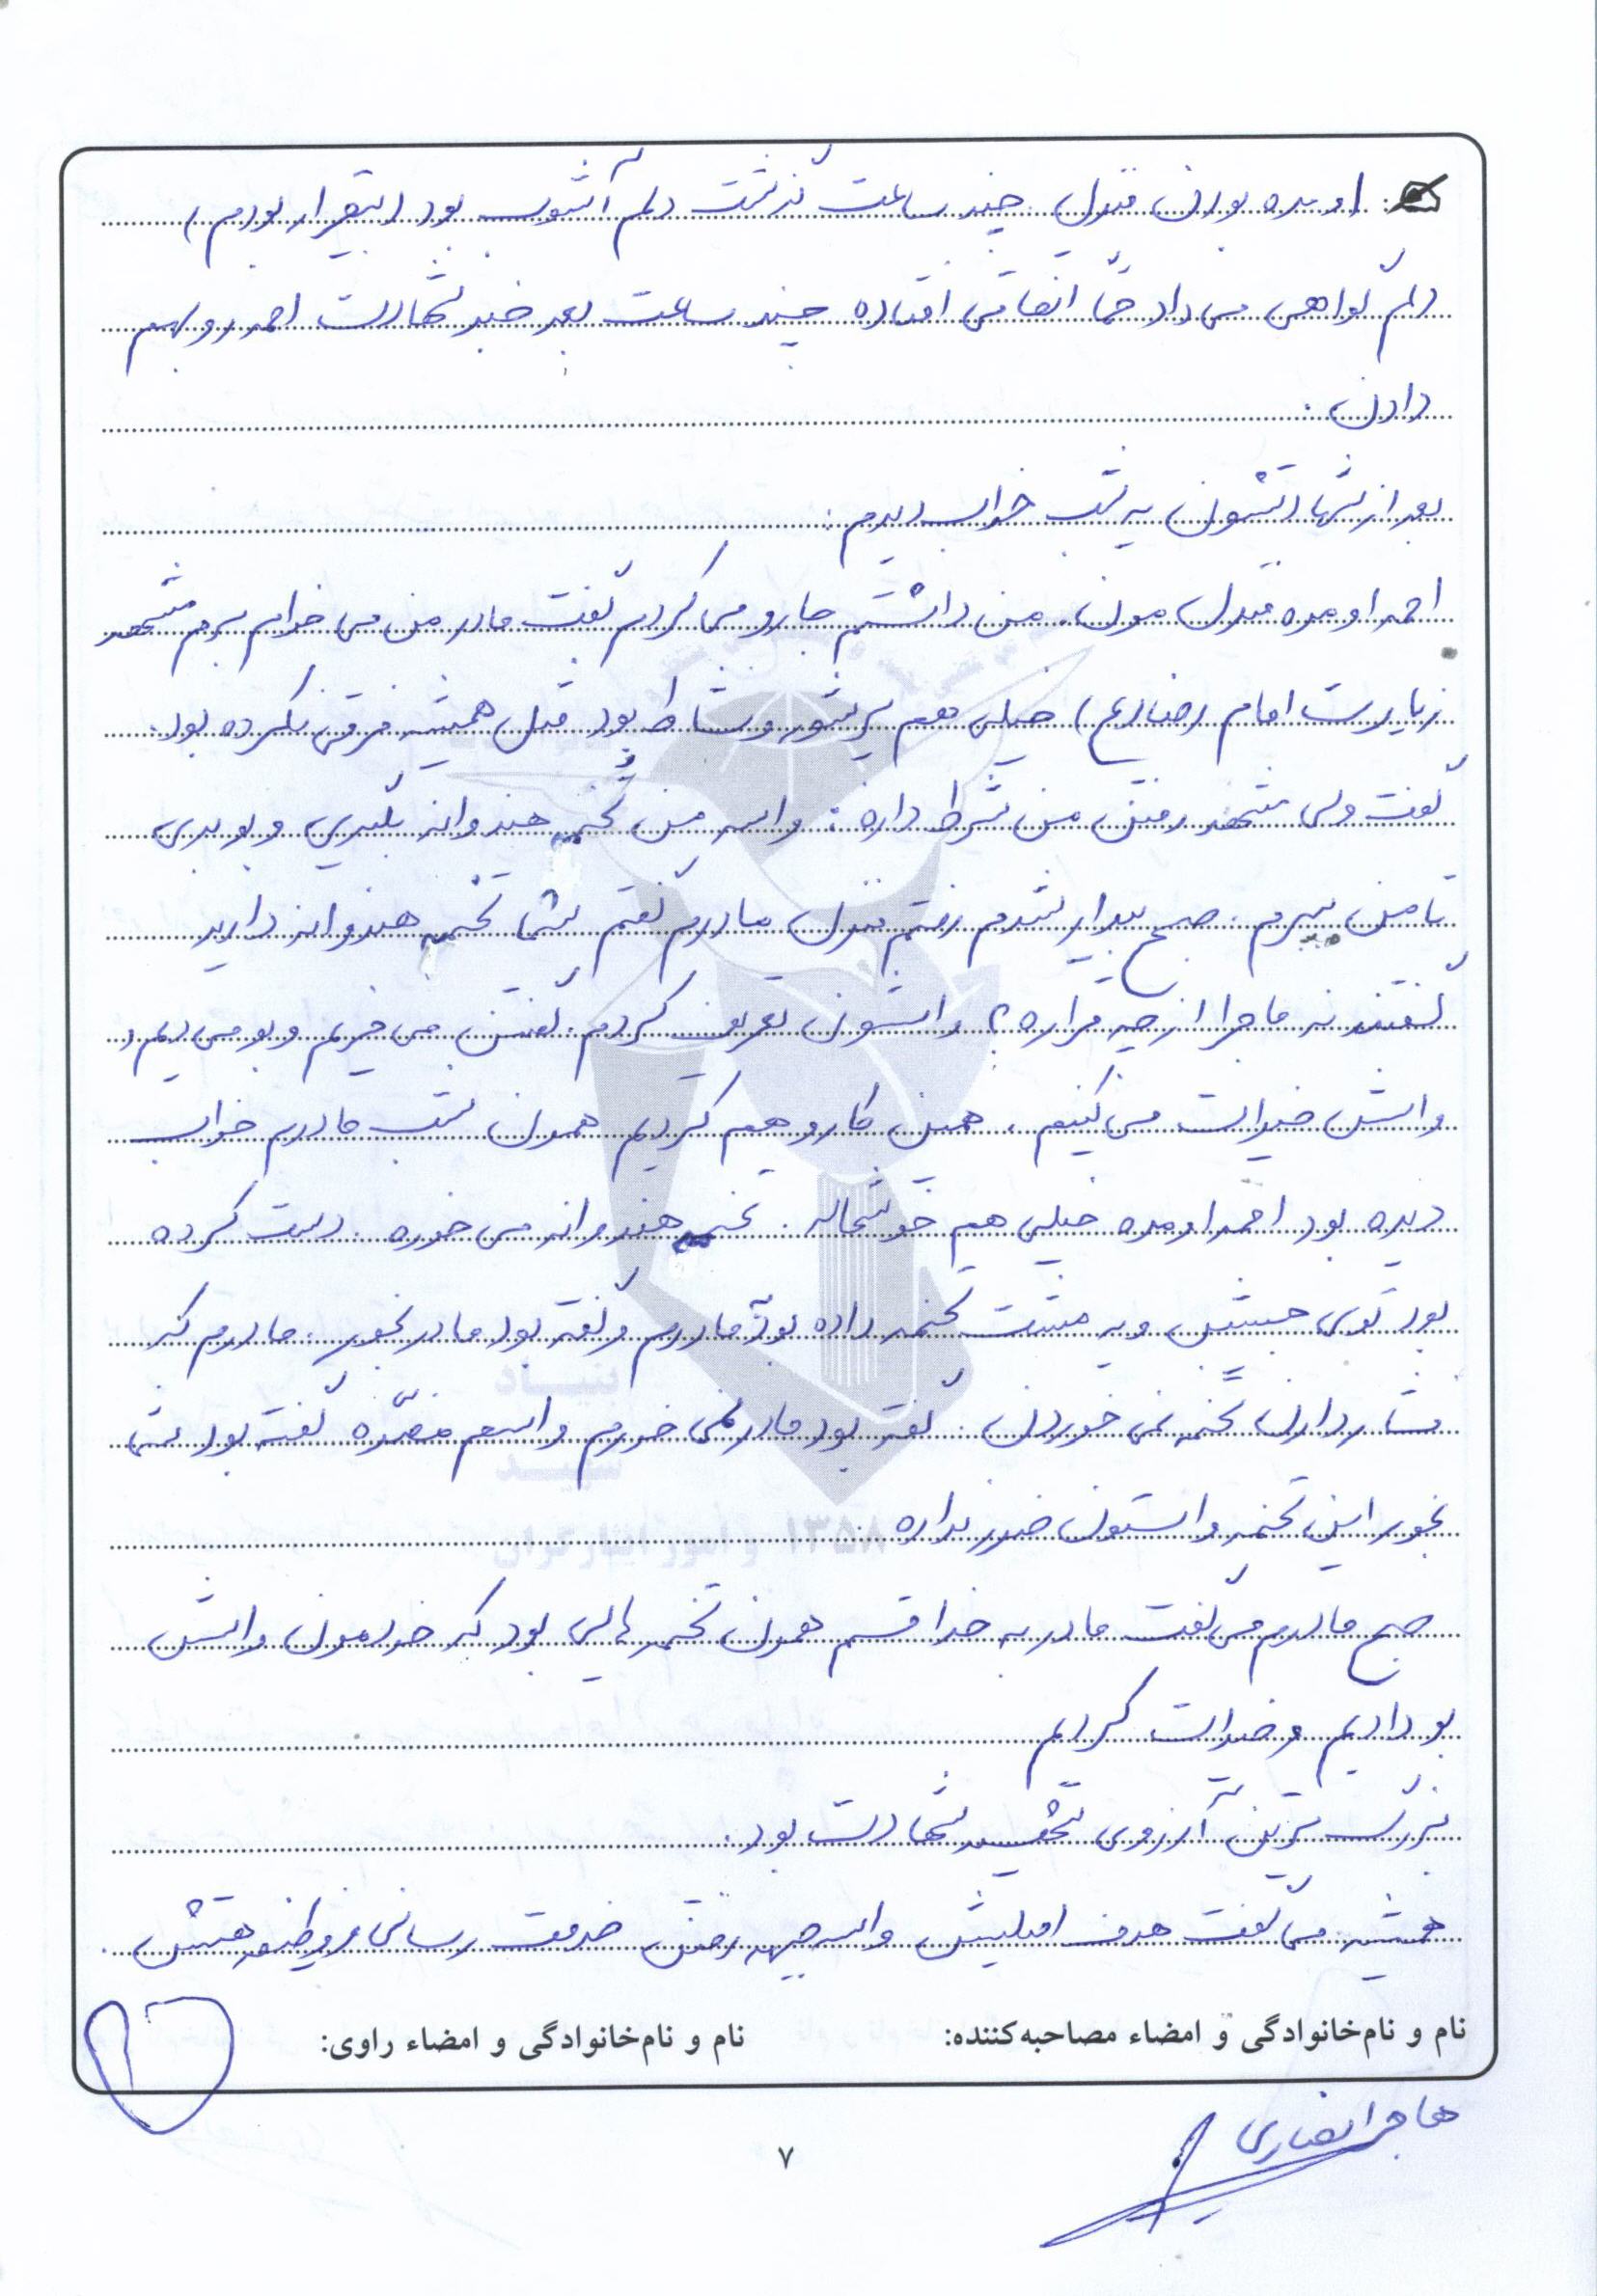 اومده بودن منزل. چند ساعت گذشت دلم آشوب بود (بیقرار بودم)
دلم گواهی می داد حتماً اتفاقی افتاده چند ساعت بعد خبر شهادت احمد رو بهم
دادن.
بعد از شهادتشون یه شب خواب دیدم:
احمد اومده منزل مون. من داشتم جارو می کردم گفت مادر من می خوام برم مشهد
زیارت امام رضا (ع) خیلی هم پرشور و نشاط بود مثل همیشه فرقی نکرده بود.
گفت ولی مشهد رفتن من شرط داره: واسه من تخمه هندوانه بگیری و بو بدی
تا من ببرم. صبح بیدار شدم رفتم منزل مادرم گفتم شما تخمه هندوانه دارید
گفتند نه ماجرا از چه قراره؟ واسشون تعریف کردم. گفتن می خریم و بو می دیم و
واسش خیرات می کنیم. همین کارو هم کردیم همون شب مادرم خواب
دیده بود احمد اومده خیلی هم خوشحاله. تخمه هندوانه می خوره. دست کرده
بود توی جیبش و یه مشت تخمه داده بود به مادرم و گفته بود مادر بخور. مادرم که
فشار دارن تخمه نمی خوردن. گفته بود مادر نمی خورم واسم مضرّه گفته بود شما
بخور این تخمه واستون ضرر نداره
صبح مادرم می گفت مادر به خدا قسم همون تخمه هایی بود که خودمون واسش
بو دادیم و خیرات کردیم
بزرگ ترین آرزوی شهید شهادت بود.
همیشه می گفت هدف اصلیش واسه جبهه رفتن خدمت رسانی و وظیفه هستش.
نام و نام‌خانوادگی و امضاء مصاحبه‌کننده:
نام و نام‌خانوادگی و امضاء راوی:
هاجر انصاری
۷
بنیاد
شهید
و امور ایثارگران ۱۳۵۸